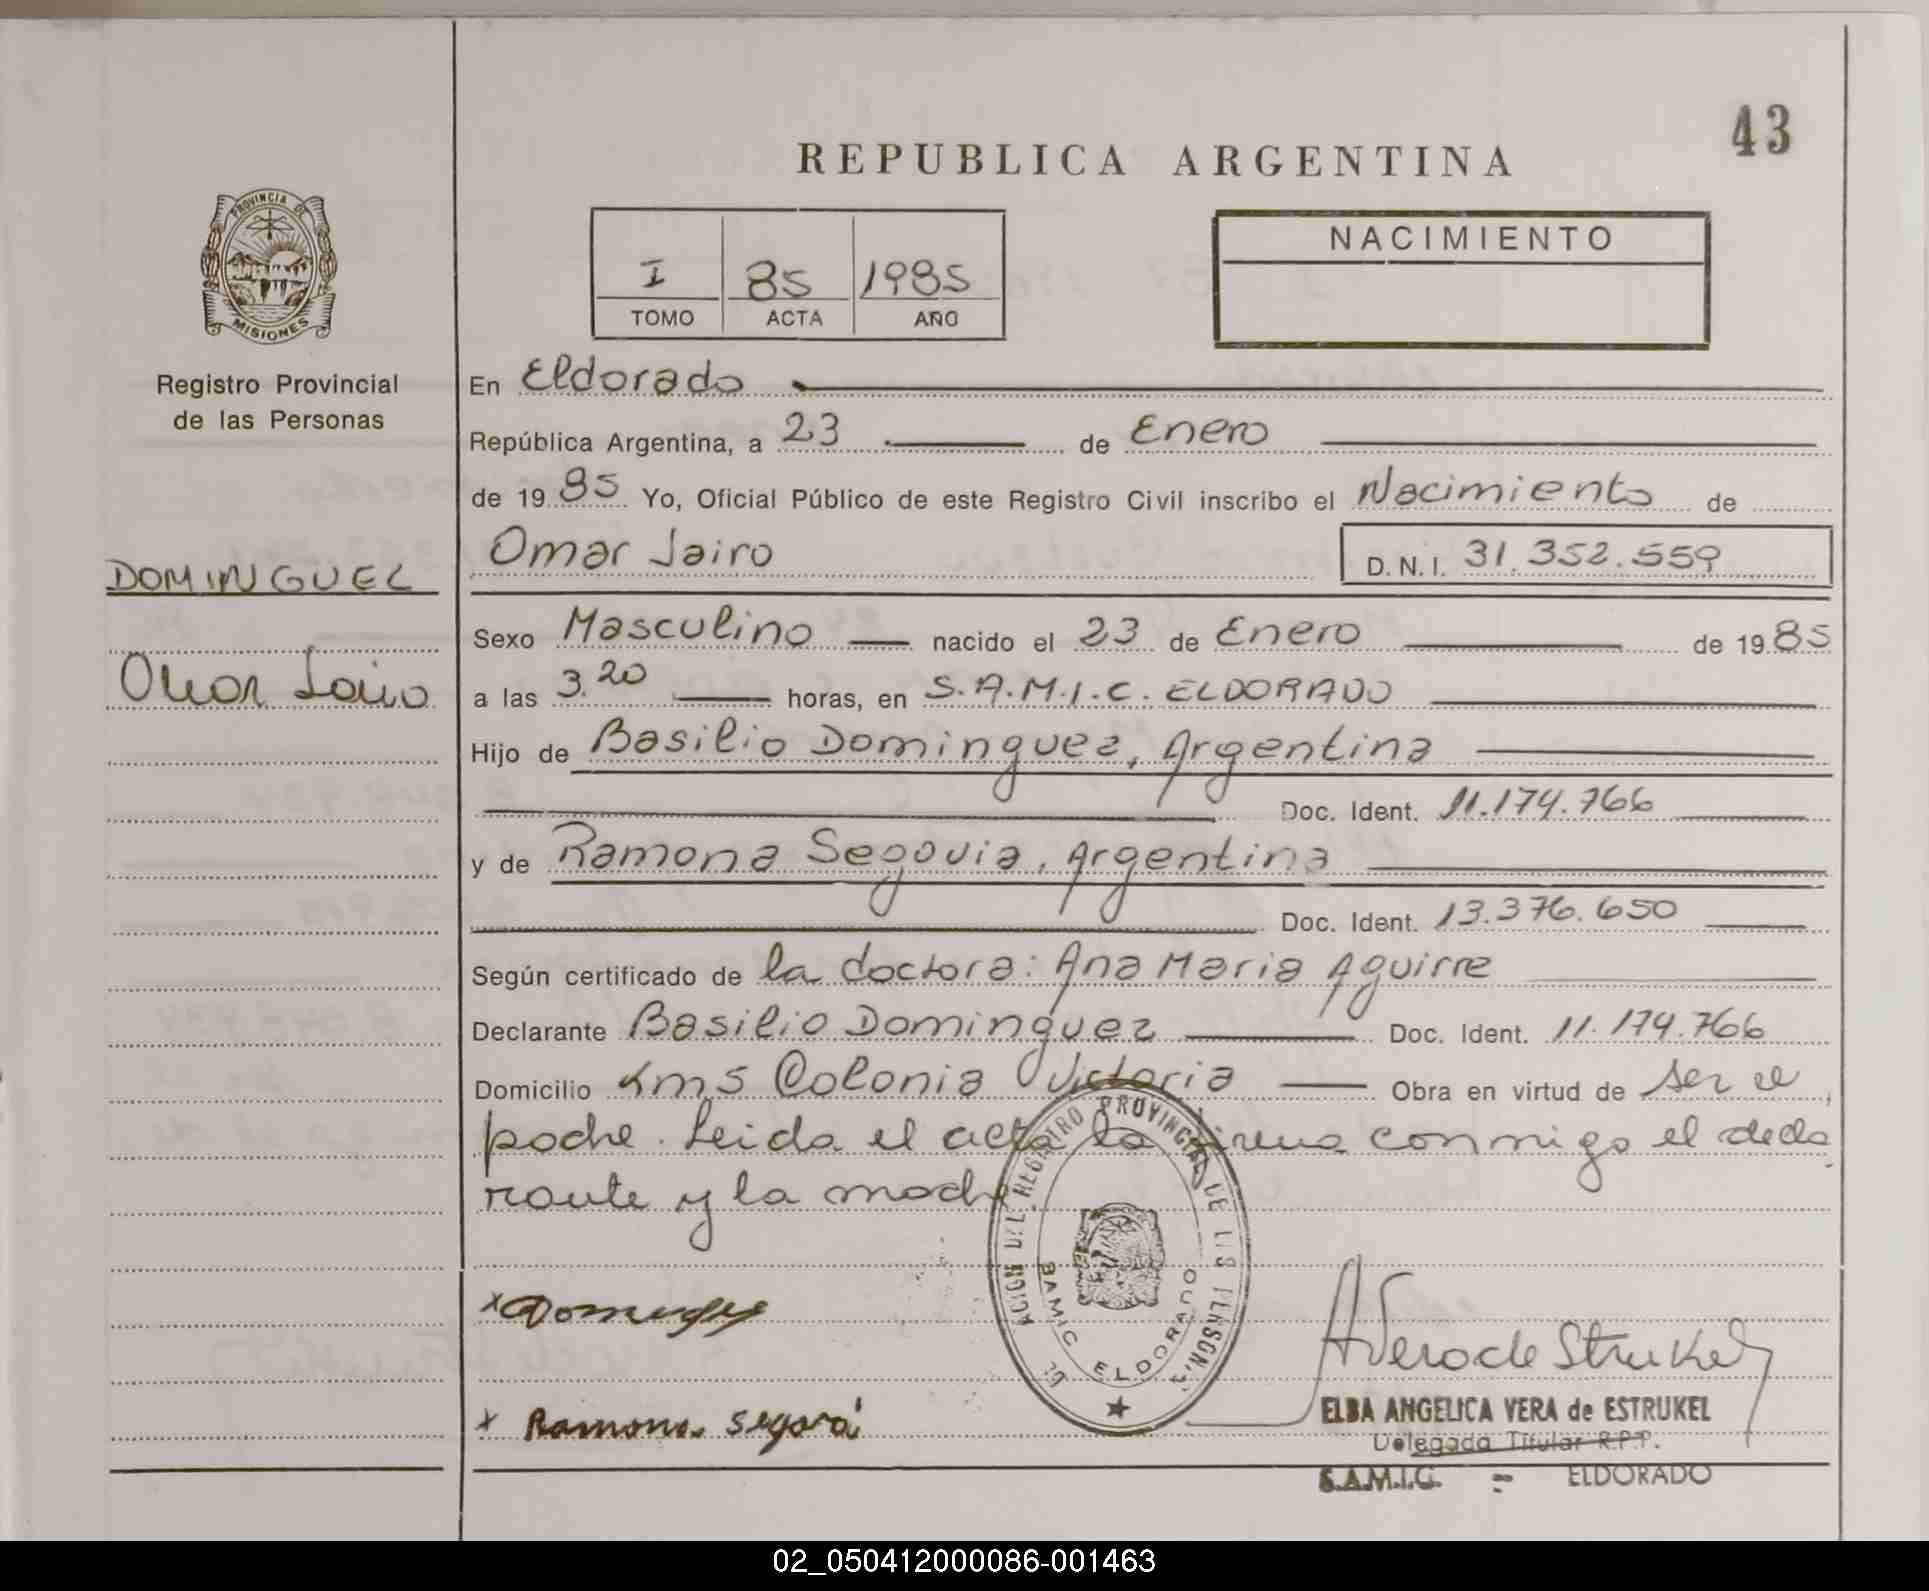 43
REPUBLICA ARGENTINA
PROVINCIA DE
MISIONES
Registro Provincial
de las Personas
I 85 1985
TOMO ACTA AÑO
NACIMIENTO
En Eldorado
República Argentina, a 23 de Enero
de 1985 Yo, Oficial Público de este Registro Civil inscribo el Nacimiento de
Omar Jairo D.N.I. 31.352.559
DOMINGUEZ
Omar Jairo
Sexo Masculino nacido el 23 de Enero de 1985
a las 3.20 horas, en S.A.M.I.C. ELDORADO
Hijo de Basilio Dominguez, Argentina
Doc. Ident. 11.174.766
y de Ramona Segovia, Argentina
Doc. Ident. 13.376.650
Según certificado de la doctora: Ana Maria Aguirre
Declarante Basilio Dominguez Doc. Ident. 11.174.766
Domicilio Km5 Colonia Victoria Obra en virtud de ser el
padre. Leida el acta la firma conmigo el decla
rante y la madre.
REGISTRO PROVINCIAL DE LAS PERSONAS
SAMIC ELDORADO
x Dominguez
x Ramona Segovia
A Vera de Strukel
ELBA ANGELICA VERA de ESTRUKEL
Delegada Titular R.P.P.
S.A.M.I.C. = ELDORADO
02_050412000086-001463